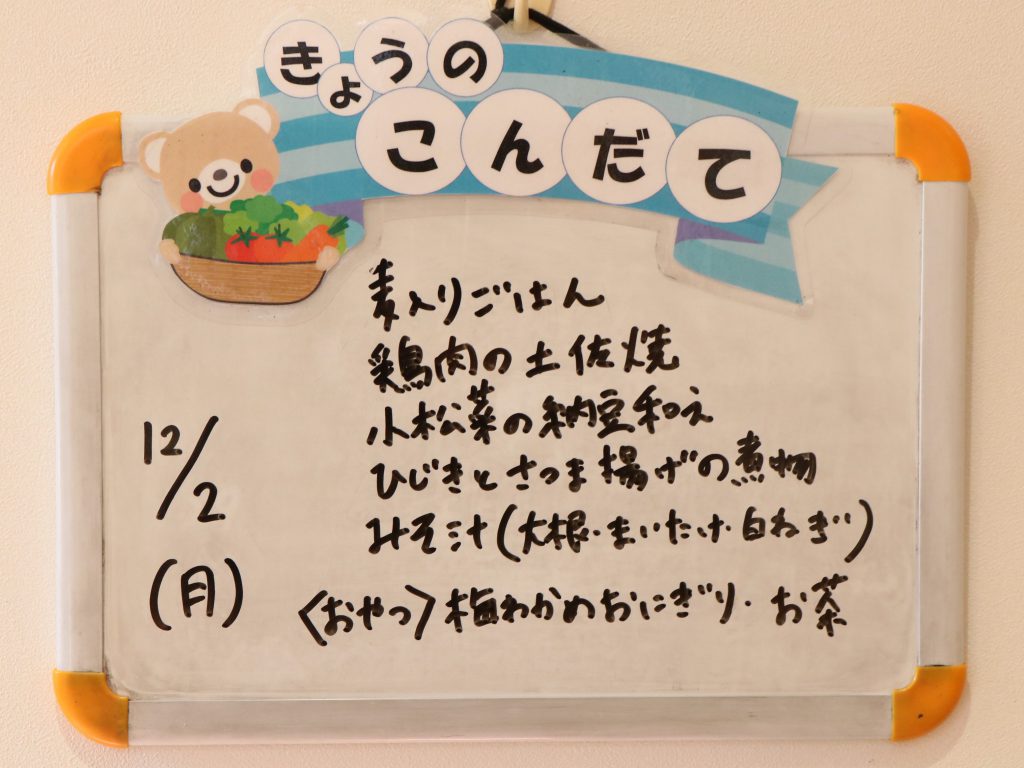 きょうの
こんだて
麦入りごはん
鶏肉の土佐焼
小松菜の納豆和え
ひじきとさつま揚げの煮物
みそ汁(大根・まいたけ・白ねぎ)
12/2
(月)
〈おやつ〉梅わかめおにぎり・お茶